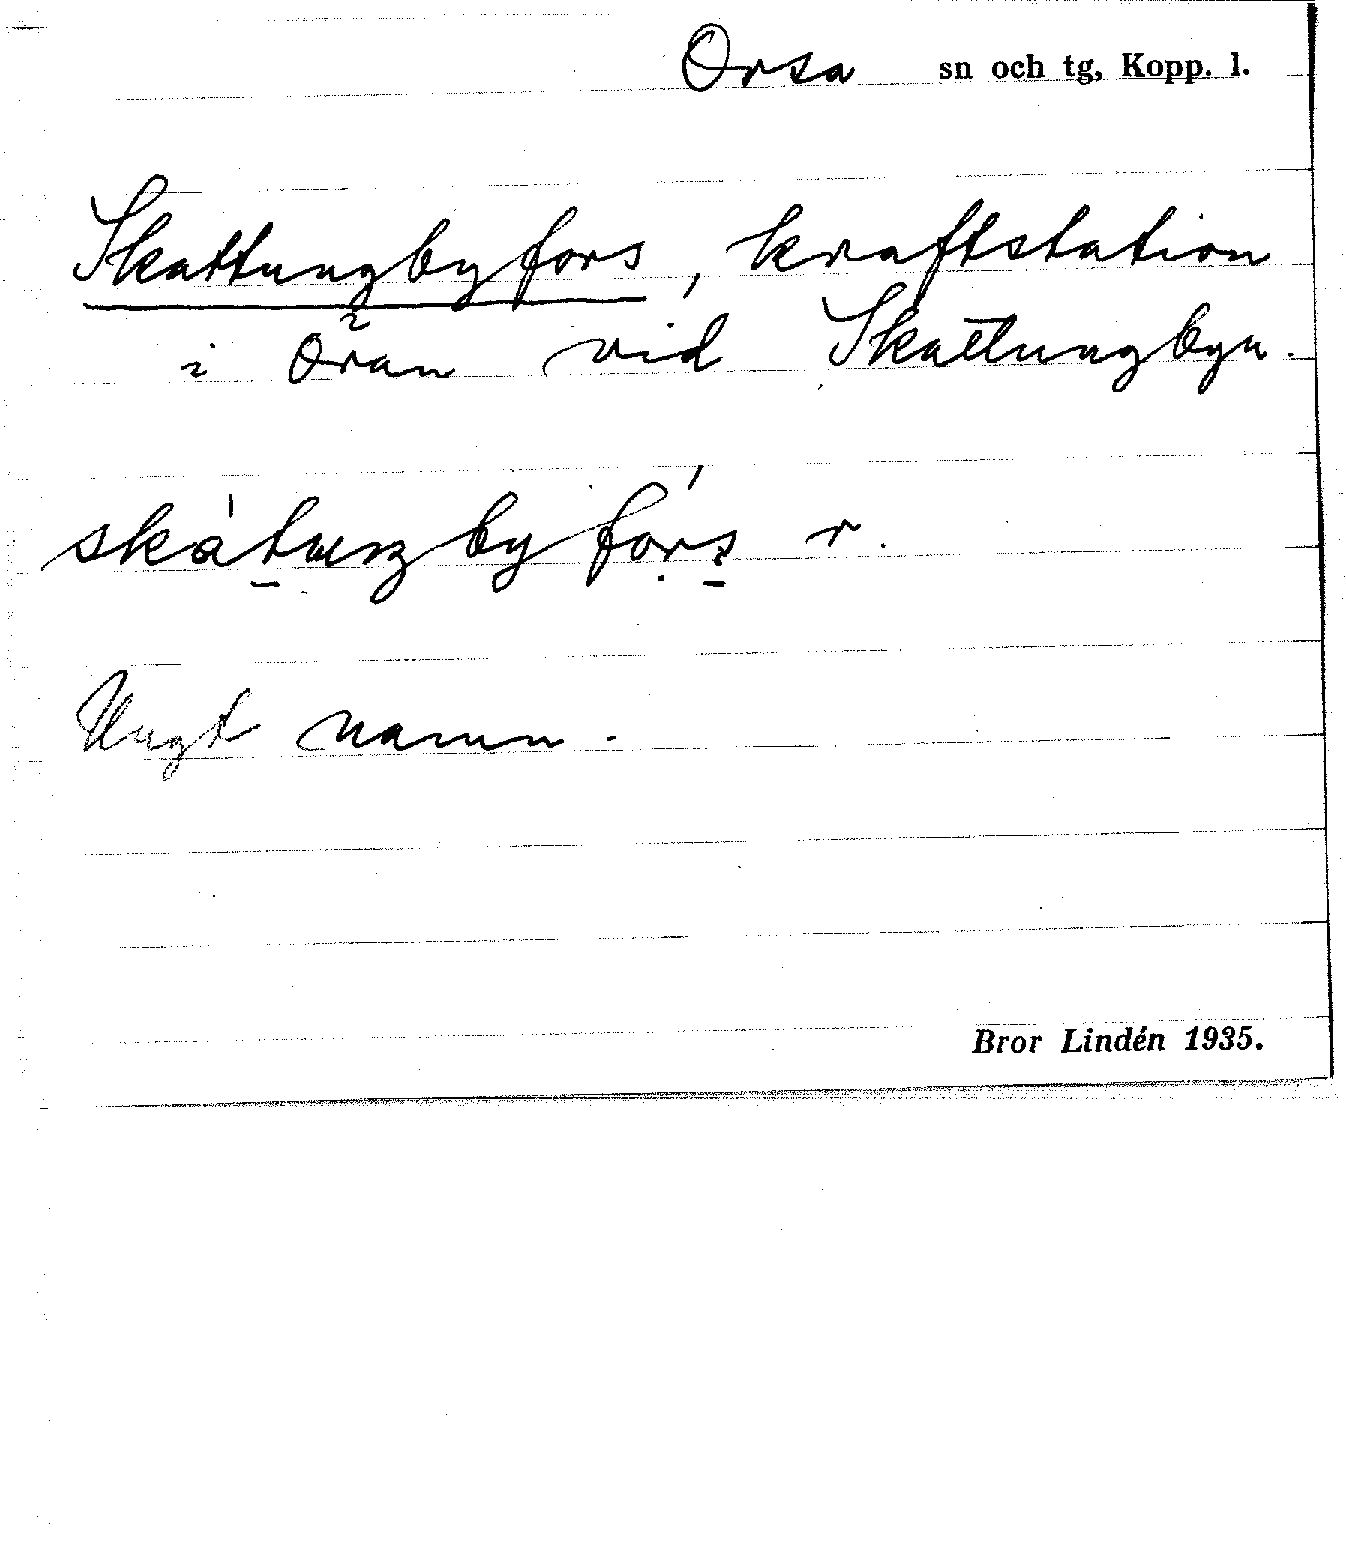 Orsa sn och tg, Kopp. l.
Skattungbyfors, kraftstation
i Öran vid Skattungbyn.
r.
Ungt namn.
Bror Lindén 1935.